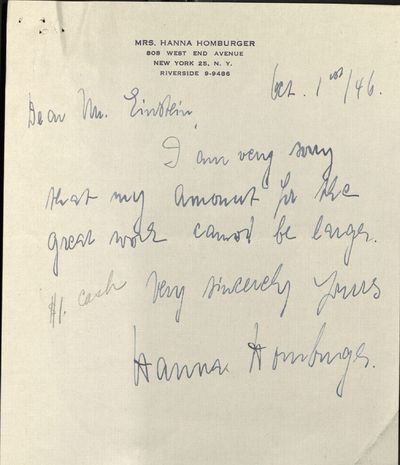 MRS. HANNA HOMBURGER
808 WEST END AVENUE
NEW YORK 25, N. Y.
RIVERSIDE 9-9486
Oct. 1st/46.
Dear Mr. Einstein,
I am very sorry
that my amount for the
great work cannot be larger.
$1. cash
Very sincerely Yours
Hanna Homburger.